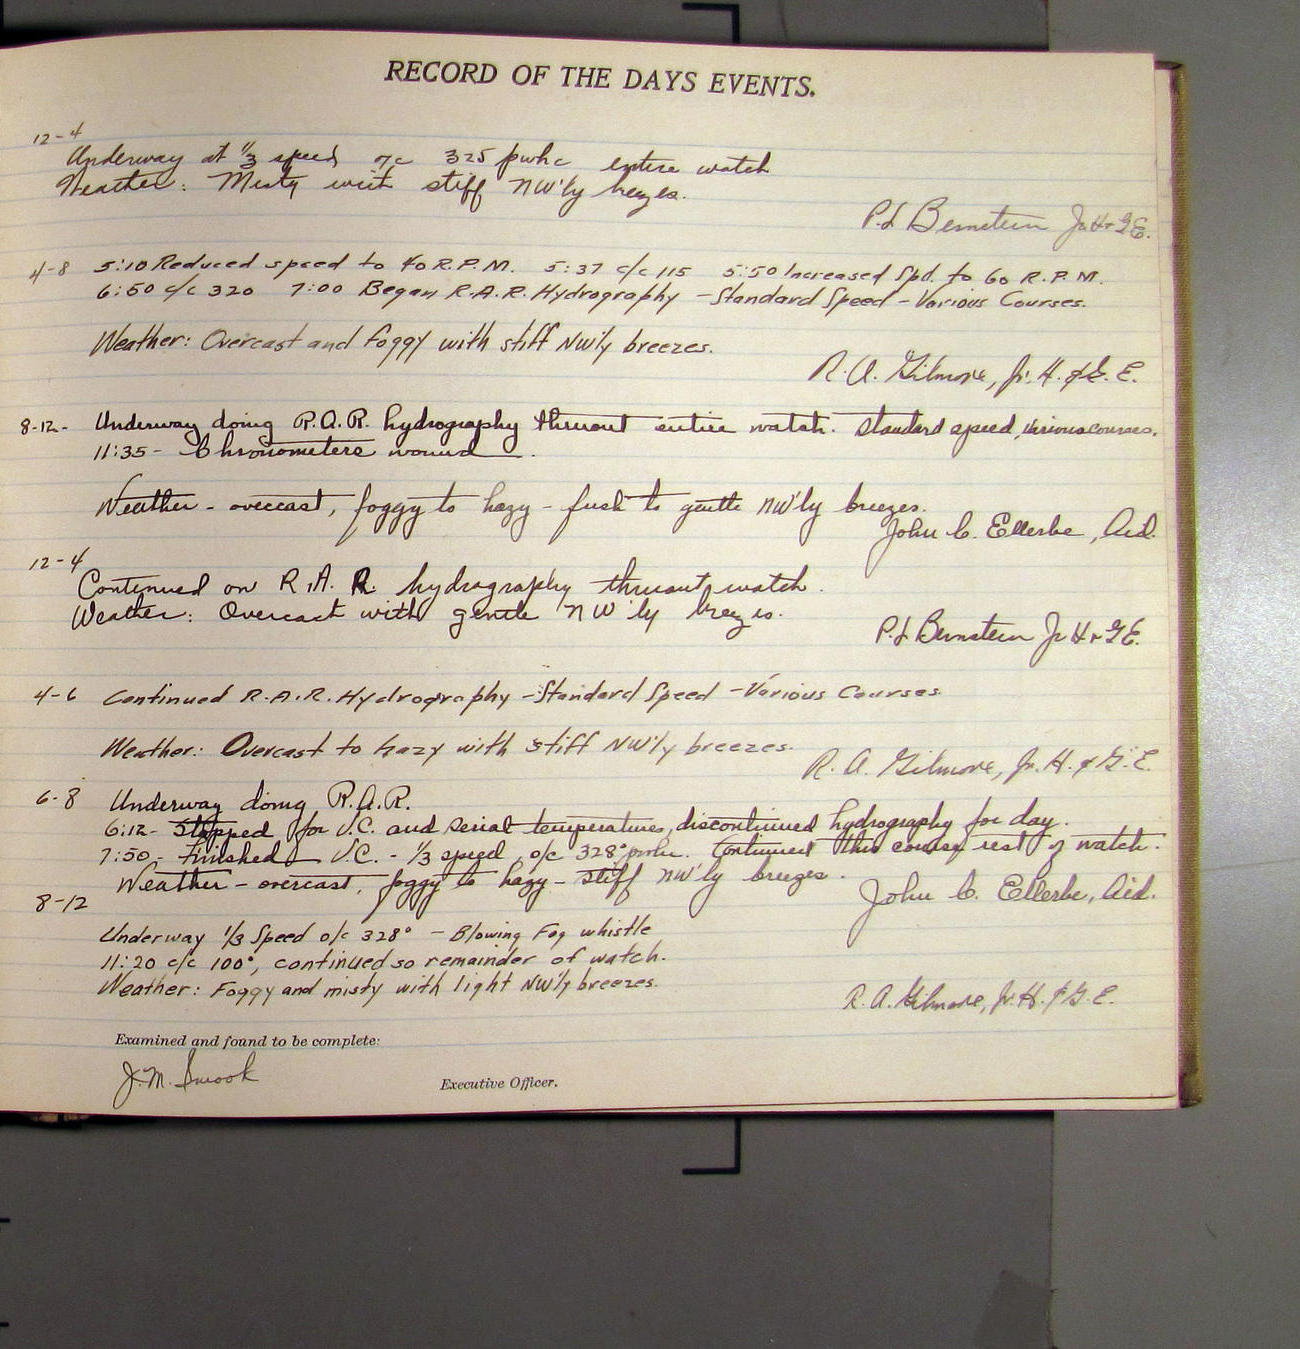 RECORD OF THE DAYS EVENTS.
12-4
Underway at 1/3 speed o/c 325 pwhc entire watch
Weather: Misty with stiff NW'ly brezes.
P.L. Bernstein Jr. H + G E.
4-8 5:10 Reduced speed to 40 R.P.M. 5:37 c/c 115 5:50 Increased Spd. to 60 R.P.M.
6:50 c/c 320 7:00 Began R.A.R. Hydrography - Standard Speed - Various Courses.
Weather: Overcast and foggy with stiff NW'ly breezes.
R. A. Gilmore, Jr. H. & G. E.
8-12- Underway doing R.A.R. hydrography thruout entire watch. Standard speed, various courses.
11:35 - Chronometers wound.
Weather - overcast, foggy to hazy - fresh to gentle NW'ly breezes.
John C. Ellerbe, Aid.
12-4
Continued on R.A.R. hydrography thruout watch.
Weather: Overcast with gentle NW'ly brezes.
P.L. Bernstein Jr H + G E.
4-6 Continued R.A.R. Hydrography - Standard Speed - Various Courses
Weather: Overcast to hazy with stiff NW'ly breezes.
R. A. Gilmore, Jr. H. & G. E.
6-8 Underway doing R.A.R.
6:12- Stopped for V.C. and serial temperatures, discontinued hydrography for day.
7:50 - Finished V.C. - 1/3 speed o/c 328° pwhc. Continued this course rest of watch.
Weather - overcast, foggy to hazy - stiff NW'ly breezes.
John C. Ellerbe, Aid.
8-12
Underway 1/3 Speed o/c 328° - Blowing Fog whistle
11:20 c/c 100°, continued so remainder of watch.
Weather: Foggy and misty with light NW'ly breezes.
R. A. Gilmore, Jr. H. & G. E.
Examined and found to be complete:
J. M. Smook
Executive Officer.